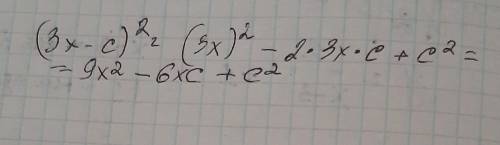 (3x - c)² = (3x)² - 2·3x·c + c² =
= 9x2 - 6xc + c2